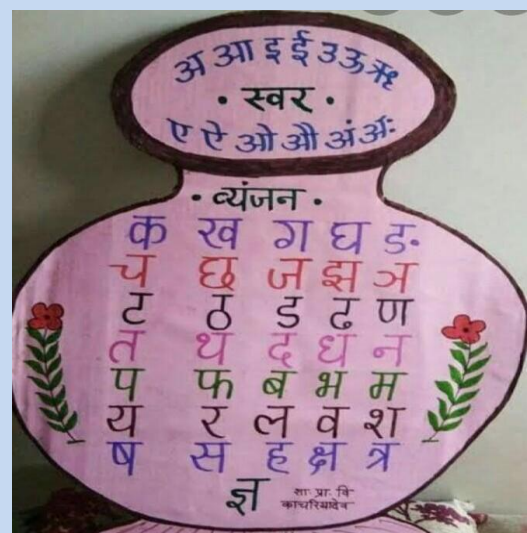 अ आ इ ई उ ऊ ऋ
• स्वर •
ए ऐ ओ औ अं अः
• व्यंजन •
क ख ग घ ङ
च छ ज झ ञ
ट ठ ड ढ ण
त थ द ध न
प फ ब भ म
य र ल व श
ष स ह क्ष त्र
ज्ञ
शा. प्रा. वि
काचरियादेव